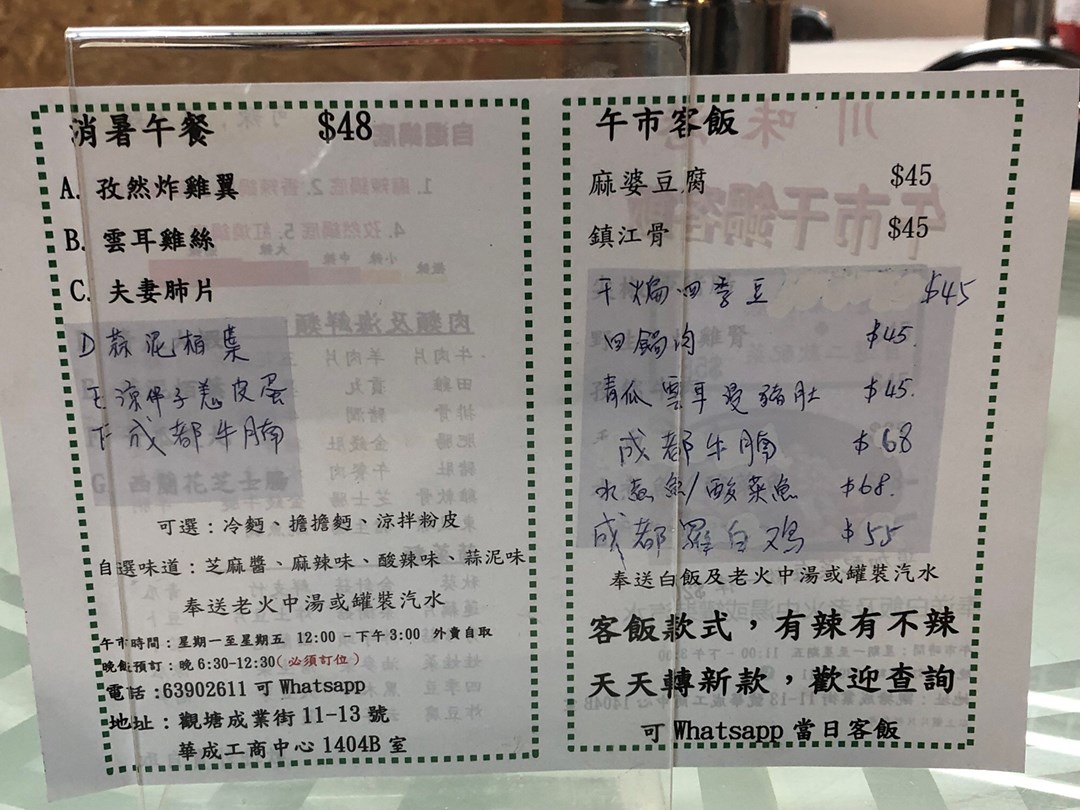 消暑午餐 $48
A. 孜然炸雞翼
B. 雲耳雞絲
C. 夫妻肺片
D 蒜泥
E 涼伴子羗皮蛋
F 成都牛腩
G. 西蘭花芝士腸
可選：冷麵、擔擔麵、涼拌粉皮
自選味道：芝麻醬、麻辣味、酸辣味、蒜泥味
奉送老火中湯或罐裝汽水
午市時間：星期一至星期五 12:00 - 下午3:00 外賣自取
晚飯預訂：晚6:30-12:30(必須訂位)
電話:63902611 可Whatsapp
地址：觀塘成業街11-13號
華成工商中心1404B室
午市客飯
麻婆豆腐 $45
鎮江骨 $45
干煸四季豆 $45
回鍋肉 $45.
青瓜雲耳燙豬肚 $45.
成都牛腩 $68
水煮魚/酸菜魚 $68.
成都羅白鸡 $55
奉送白飯及老火中湯或罐裝汽水
客飯款式，有辣有不辣
天天轉新款，歡迎查詢
可Whatsapp當日客飯